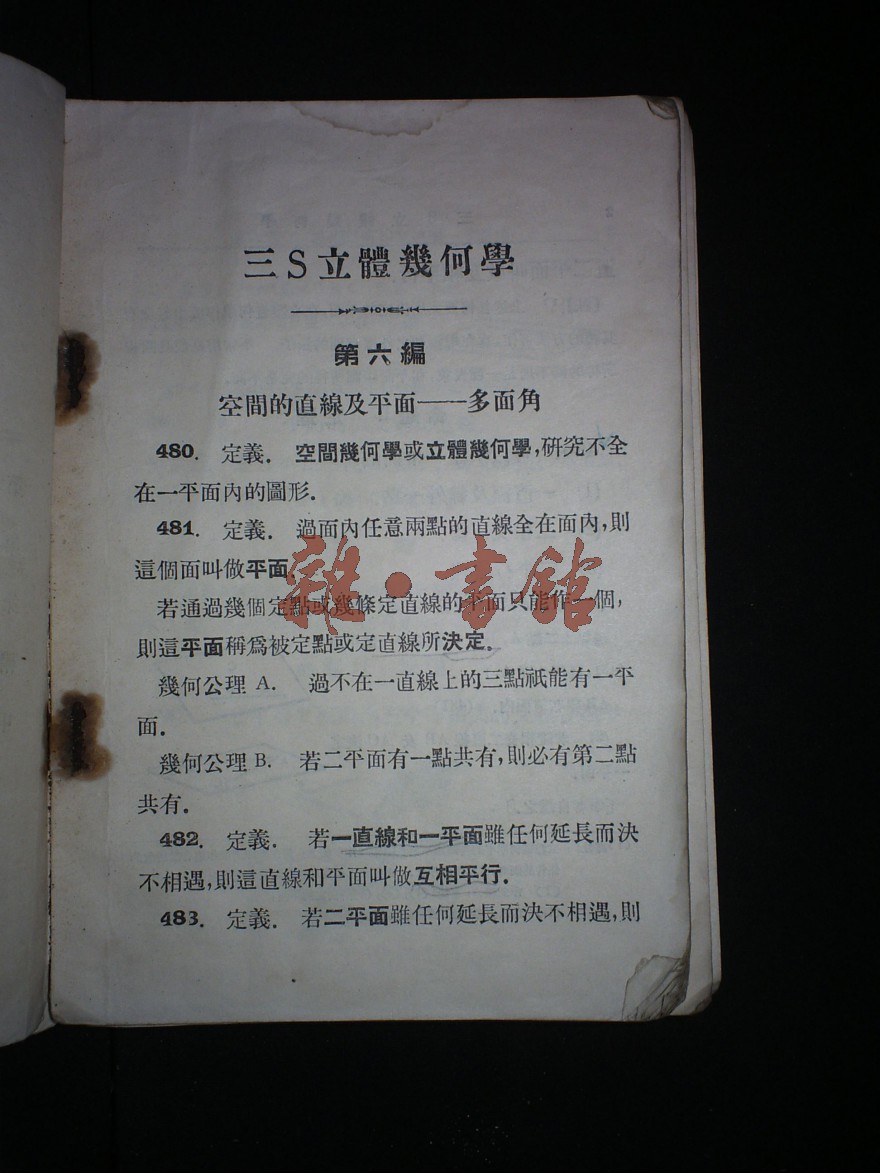 三S立體幾何學
第六編
空間的直線及平面——多面角
480. 定義. 空間幾何學或立體幾何學,研究不全
在一平面內的圖形.
481. 定義. 過面內任意兩點的直線全在面內,則
這個面叫做平面.
若通過幾個定點或幾條定直線的平面只能作一個,
則這平面稱爲被定點或定直線所決定.
幾何公理 A. 過不在一直線上的三點祇能有一平
面.
幾何公理 B. 若二平面有一點共有,則必有第二點
共有.
482. 定義. 若一直線和一平面雖任何延長而決
不相遇,則這直線和平面叫做互相平行.
483. 定義. 若二平面雖任何延長而決不相遇,則
雜·書館